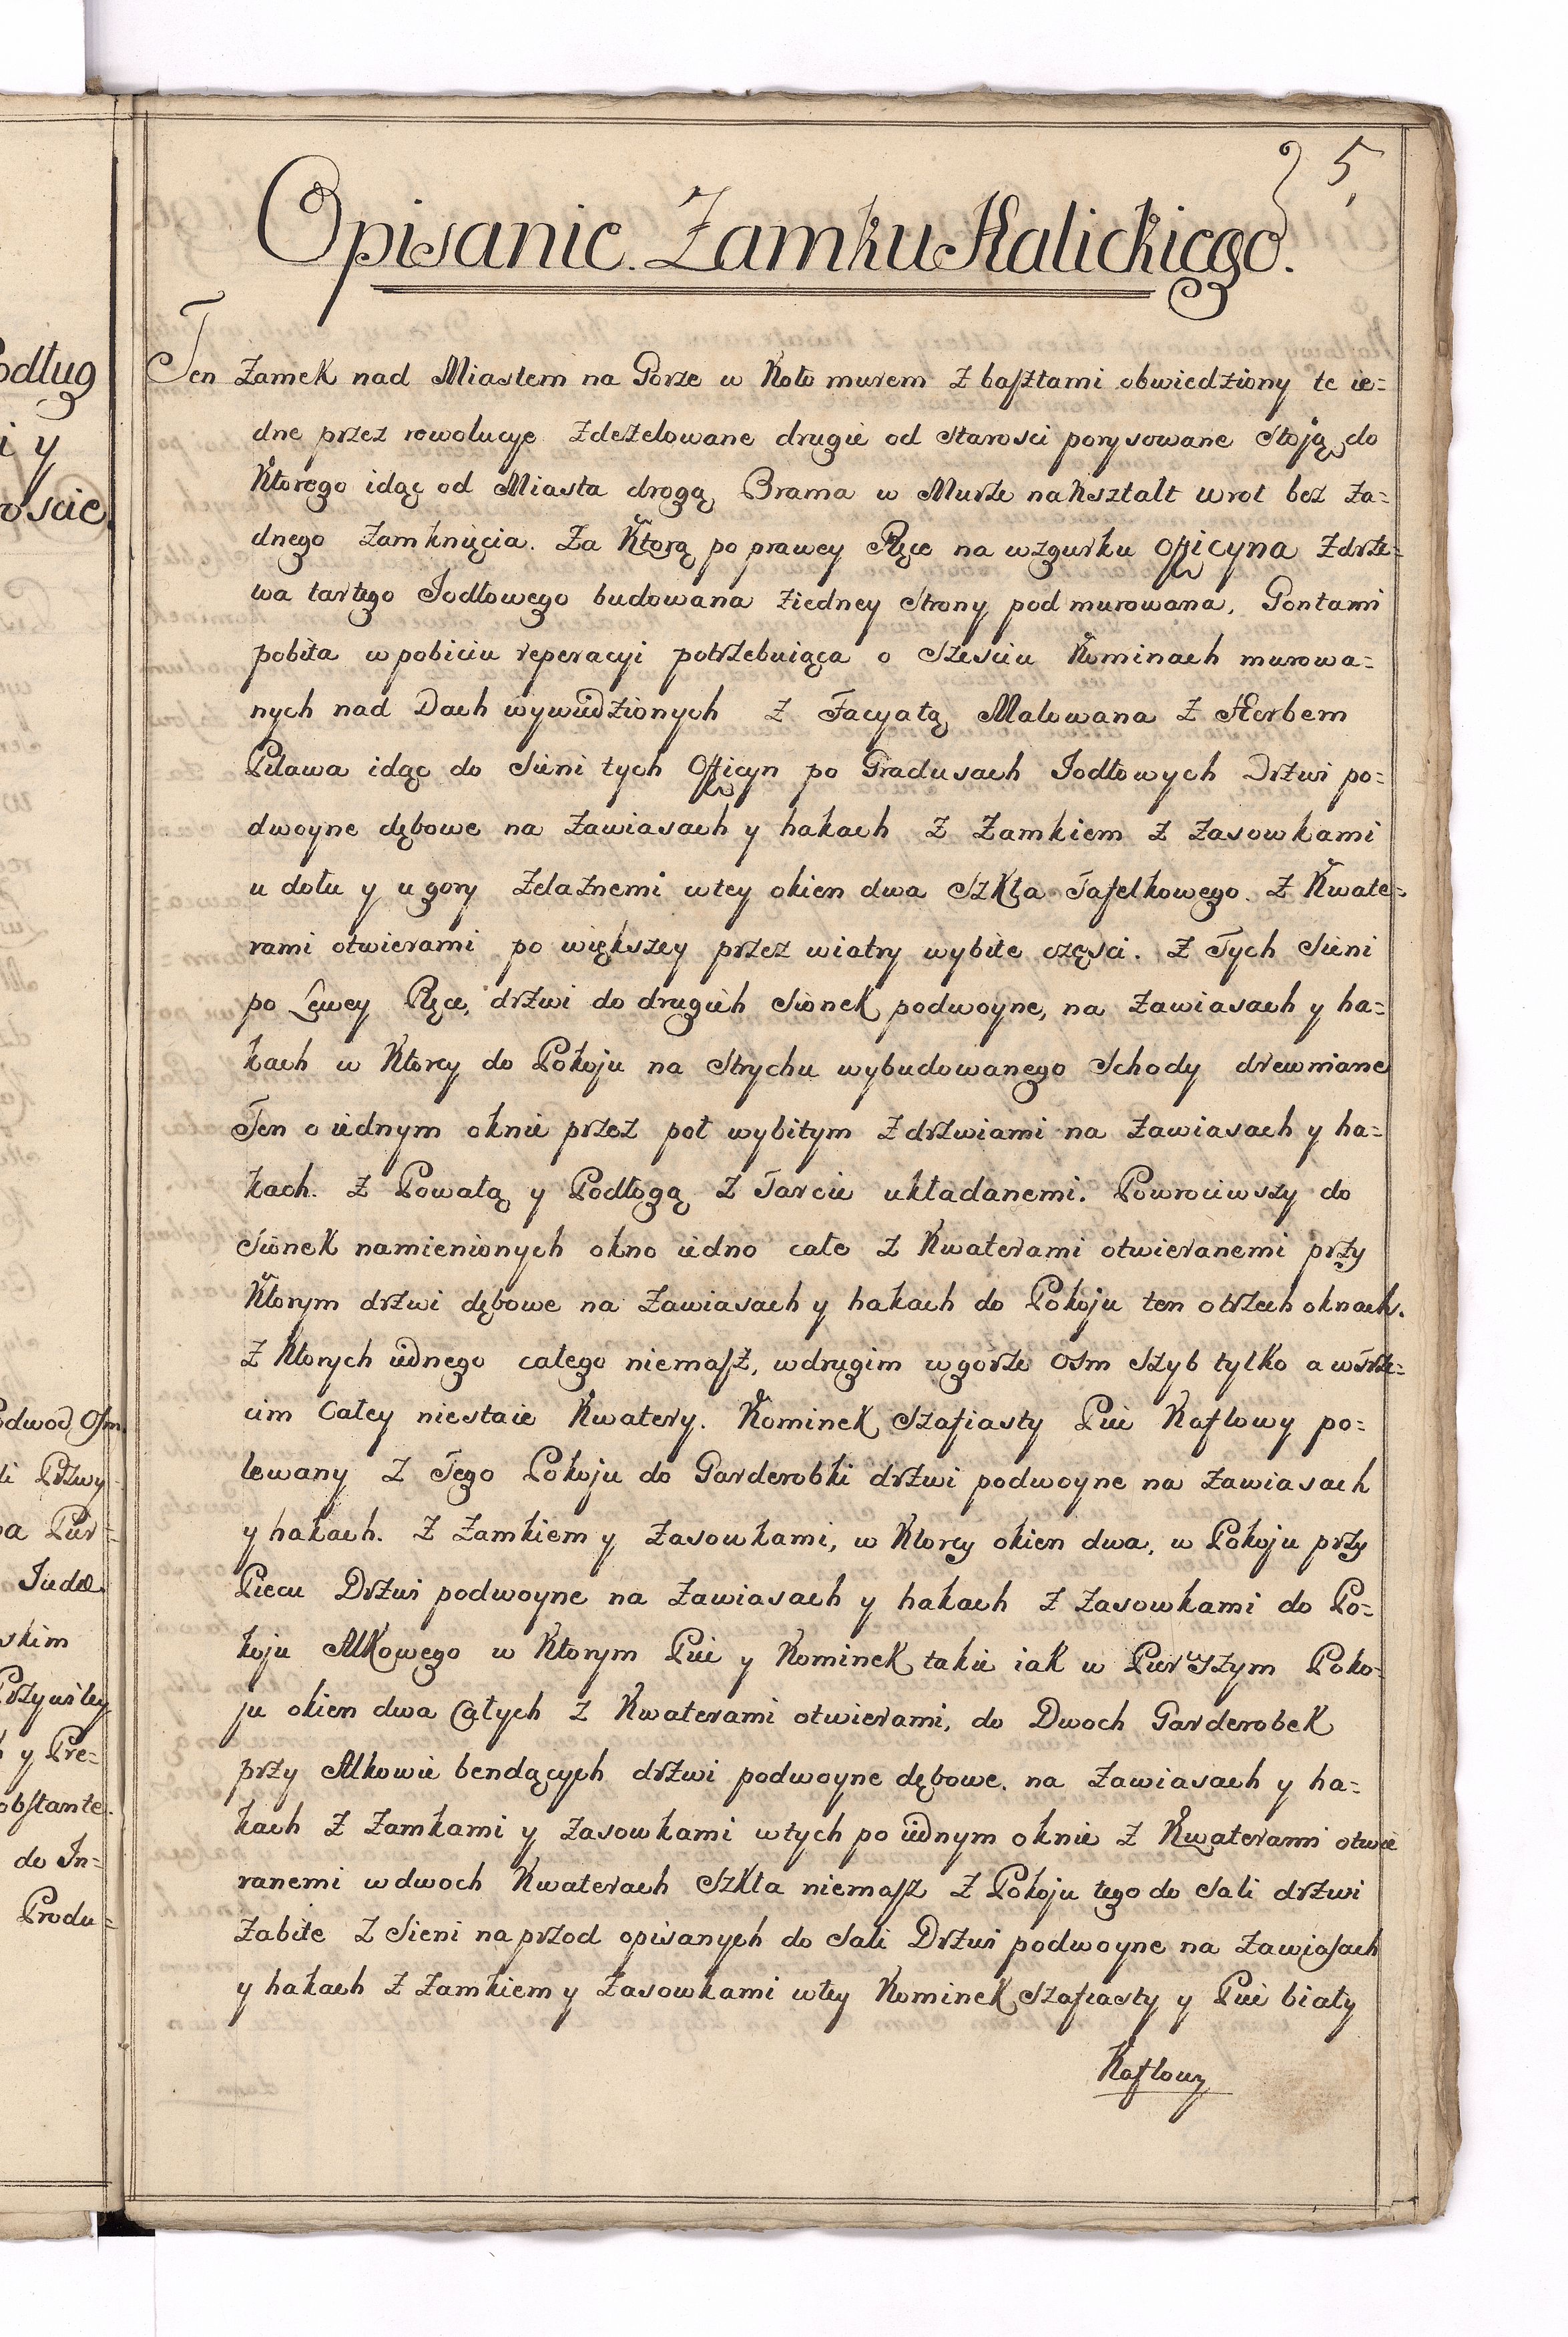 odług
i y
roscie.
Podwod Osm
li Przwy-
na Pier-
Iudæ
skim
Przyuiley
h y Pre-
obstante.
do In-
Produ-
5,
Opisanie Zamku Halickiego.
Ten Zamek nad Miastem na Gorze w Koło murem z basztami obwiedziony te ie-
dne przez rewolucye zdezelowane drugie od starosci porysowane stoją do
Ktorego idąc od Miasta drogą Brama w Murze nakształt wrot bez ża-
dnego Zamknięcia. Za Ktorą po prawey Ręce na wzgurku Officyna z drze-
wa tartego Jodłowego budowana ziedney strony pod murowana, Gontami
pobita w pobiciu reperacyi potrzebuiąca o szesciu Kominach murowa-
nych nad Dach wywiedzionych z Facyatą Malowana z Herbem
Pilawa idąc do sieni tych Officyn po Gradusach Jodłowych Drzwi po-
dwoyne dębowe na zawiasach y hakach z Zamkiem z zasowkami
u dołu y u gory żelaznemi w tey okien dwa Szkła Tafelkowego z Kwate-
rami otwierami po większey przez wiatry wybite częsci. z Tych sieni
po Lewey Ręce, drzwi do drugich sionek podwoyne, na zawiasach y ha-
kach w Ktorey do Pokoju na strychu wybudowanego Schody drewniane
Ten o iednym oknie przez poł wybitym z drzwiami na zawiasach y ha-
kach. z Powałą y Podłogą z Tarcic układanemi. Powrociwszy do
sionek namienionych okno iedno całe z Kwaterami otwieranemi przy
Ktorym drzwi dębowe na zawiasach y hakach do Pokoju ten o trzech oknach.
z Ktorych iednego całego niemasz, w drugim w gorze Osm szyb tylko a w trze-
cim Całey niestaie Kwatery. Kominek szafiasty Piec Kaflowy po-
lewany z Tego Pokoju do Garderobki drzwi podwoyne na zawiasach
y hakach. z Zamkiem y zasowkami, w Ktorey okien dwa, w Pokoju przy
Piecu Drzwi podwoyne na zawiasach y hakach z zasowkami do Po-
koju Alkowego w Ktorym Piec y Kominek takie iak w Pierwszym Poko-
ju okien dwa Całych z Kwaterami otwierami, do Dwoch Garderobek
przy Alkowie bendących drzwi podwoyne dębowe. na zawiasach y ha-
kach z Zamkami y zasowkami w tych po iednym oknie z Kwaterami otwie
ranemi w dwoch Kwaterach Szkła niemasz z Pokoju tego do Sali drzwi
zabite z sieni na przod opisanych do Sali Drzwi podwoyne na zawiasach
y hakach z Zamkiem y zasowkami w tey Kominek szafiasty y Piec biały
Kaflowy